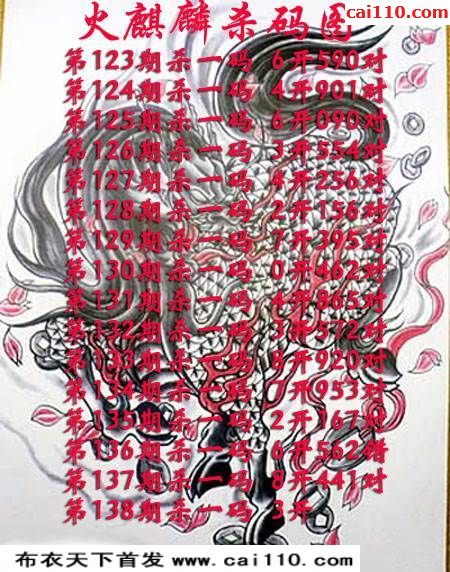 cai110.com
火麒麟杀码图
第123期杀一码 6开590对
第124期杀一码 4开901对
第125期杀一码 6开090对
第126期杀一码 3开554对
第127期杀一码 4开256对
第128期杀一码 2开156对
第129期杀一码 7开395对
第130期杀一码 0开462对
第131期杀一码 4开865对
第132期杀一码 3开572对
第133期杀一码 8开920对
第134期杀一码 7开953对
第135期杀一码 2开167对
第136期杀一码 6开562错
第137期杀一码 8开441对
第138期杀一码 3开
布衣天下首发 www.cai110.com